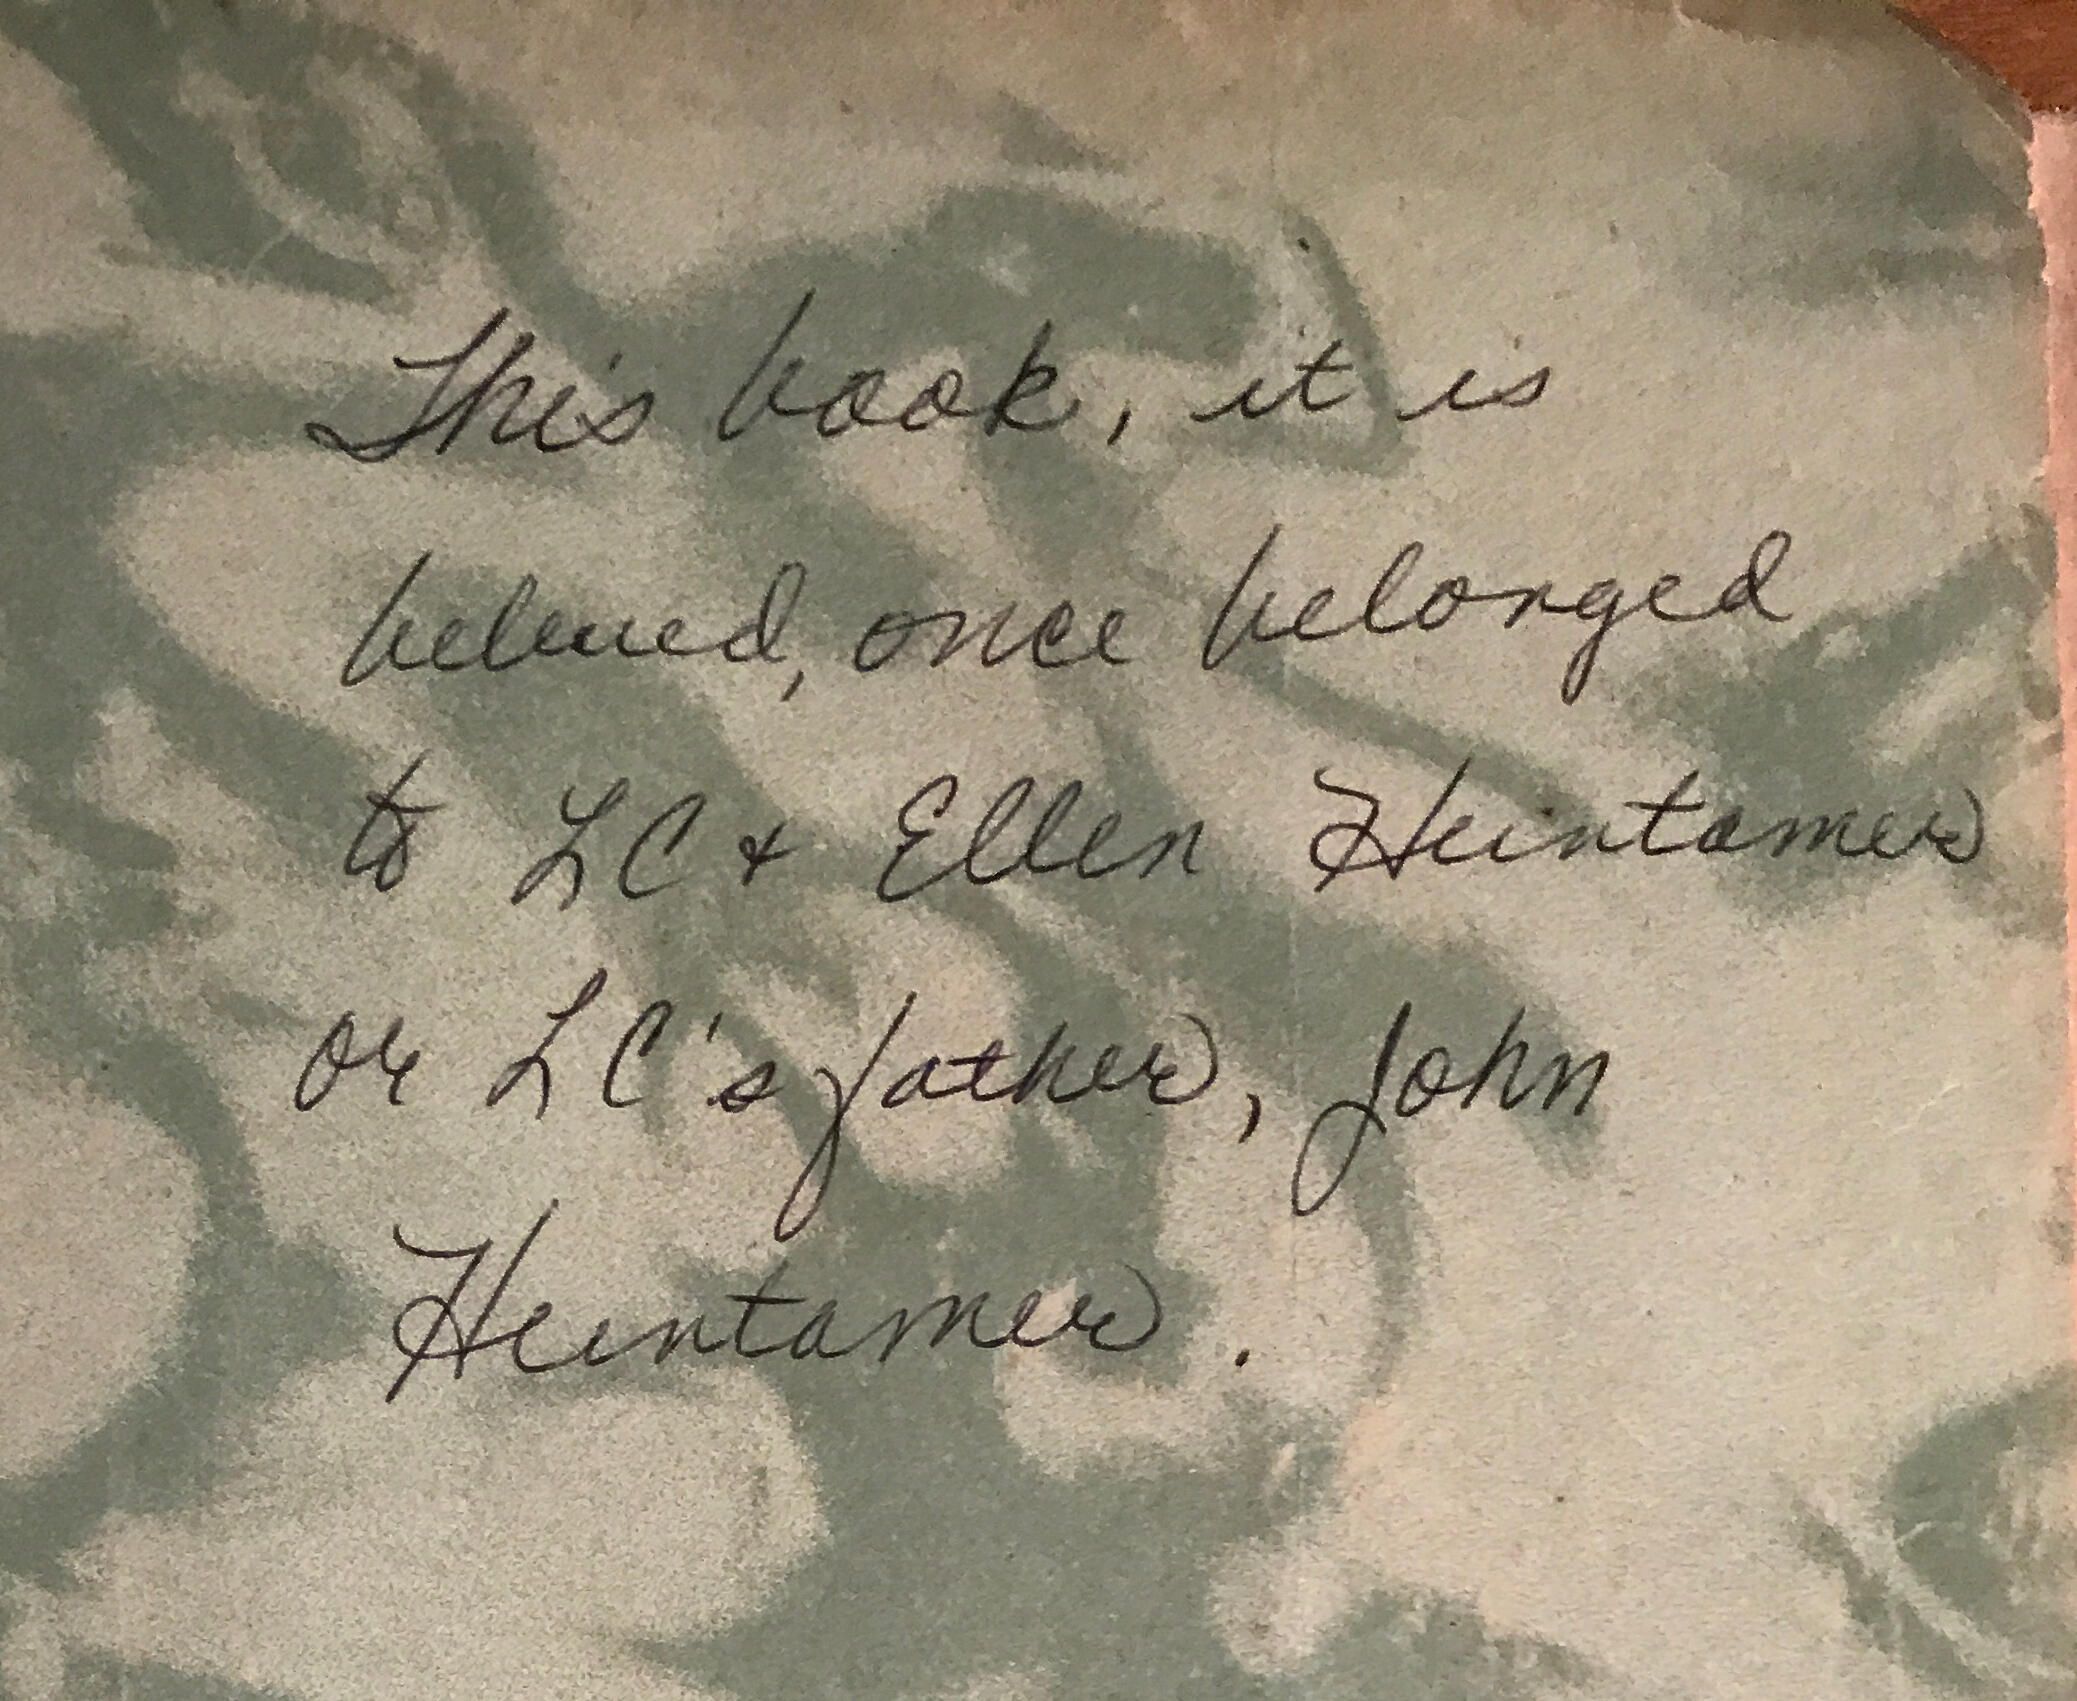 This book, it is
belived, once belonged
to LC & Ellen Heintamer
or LC's father, John
Heintamer.